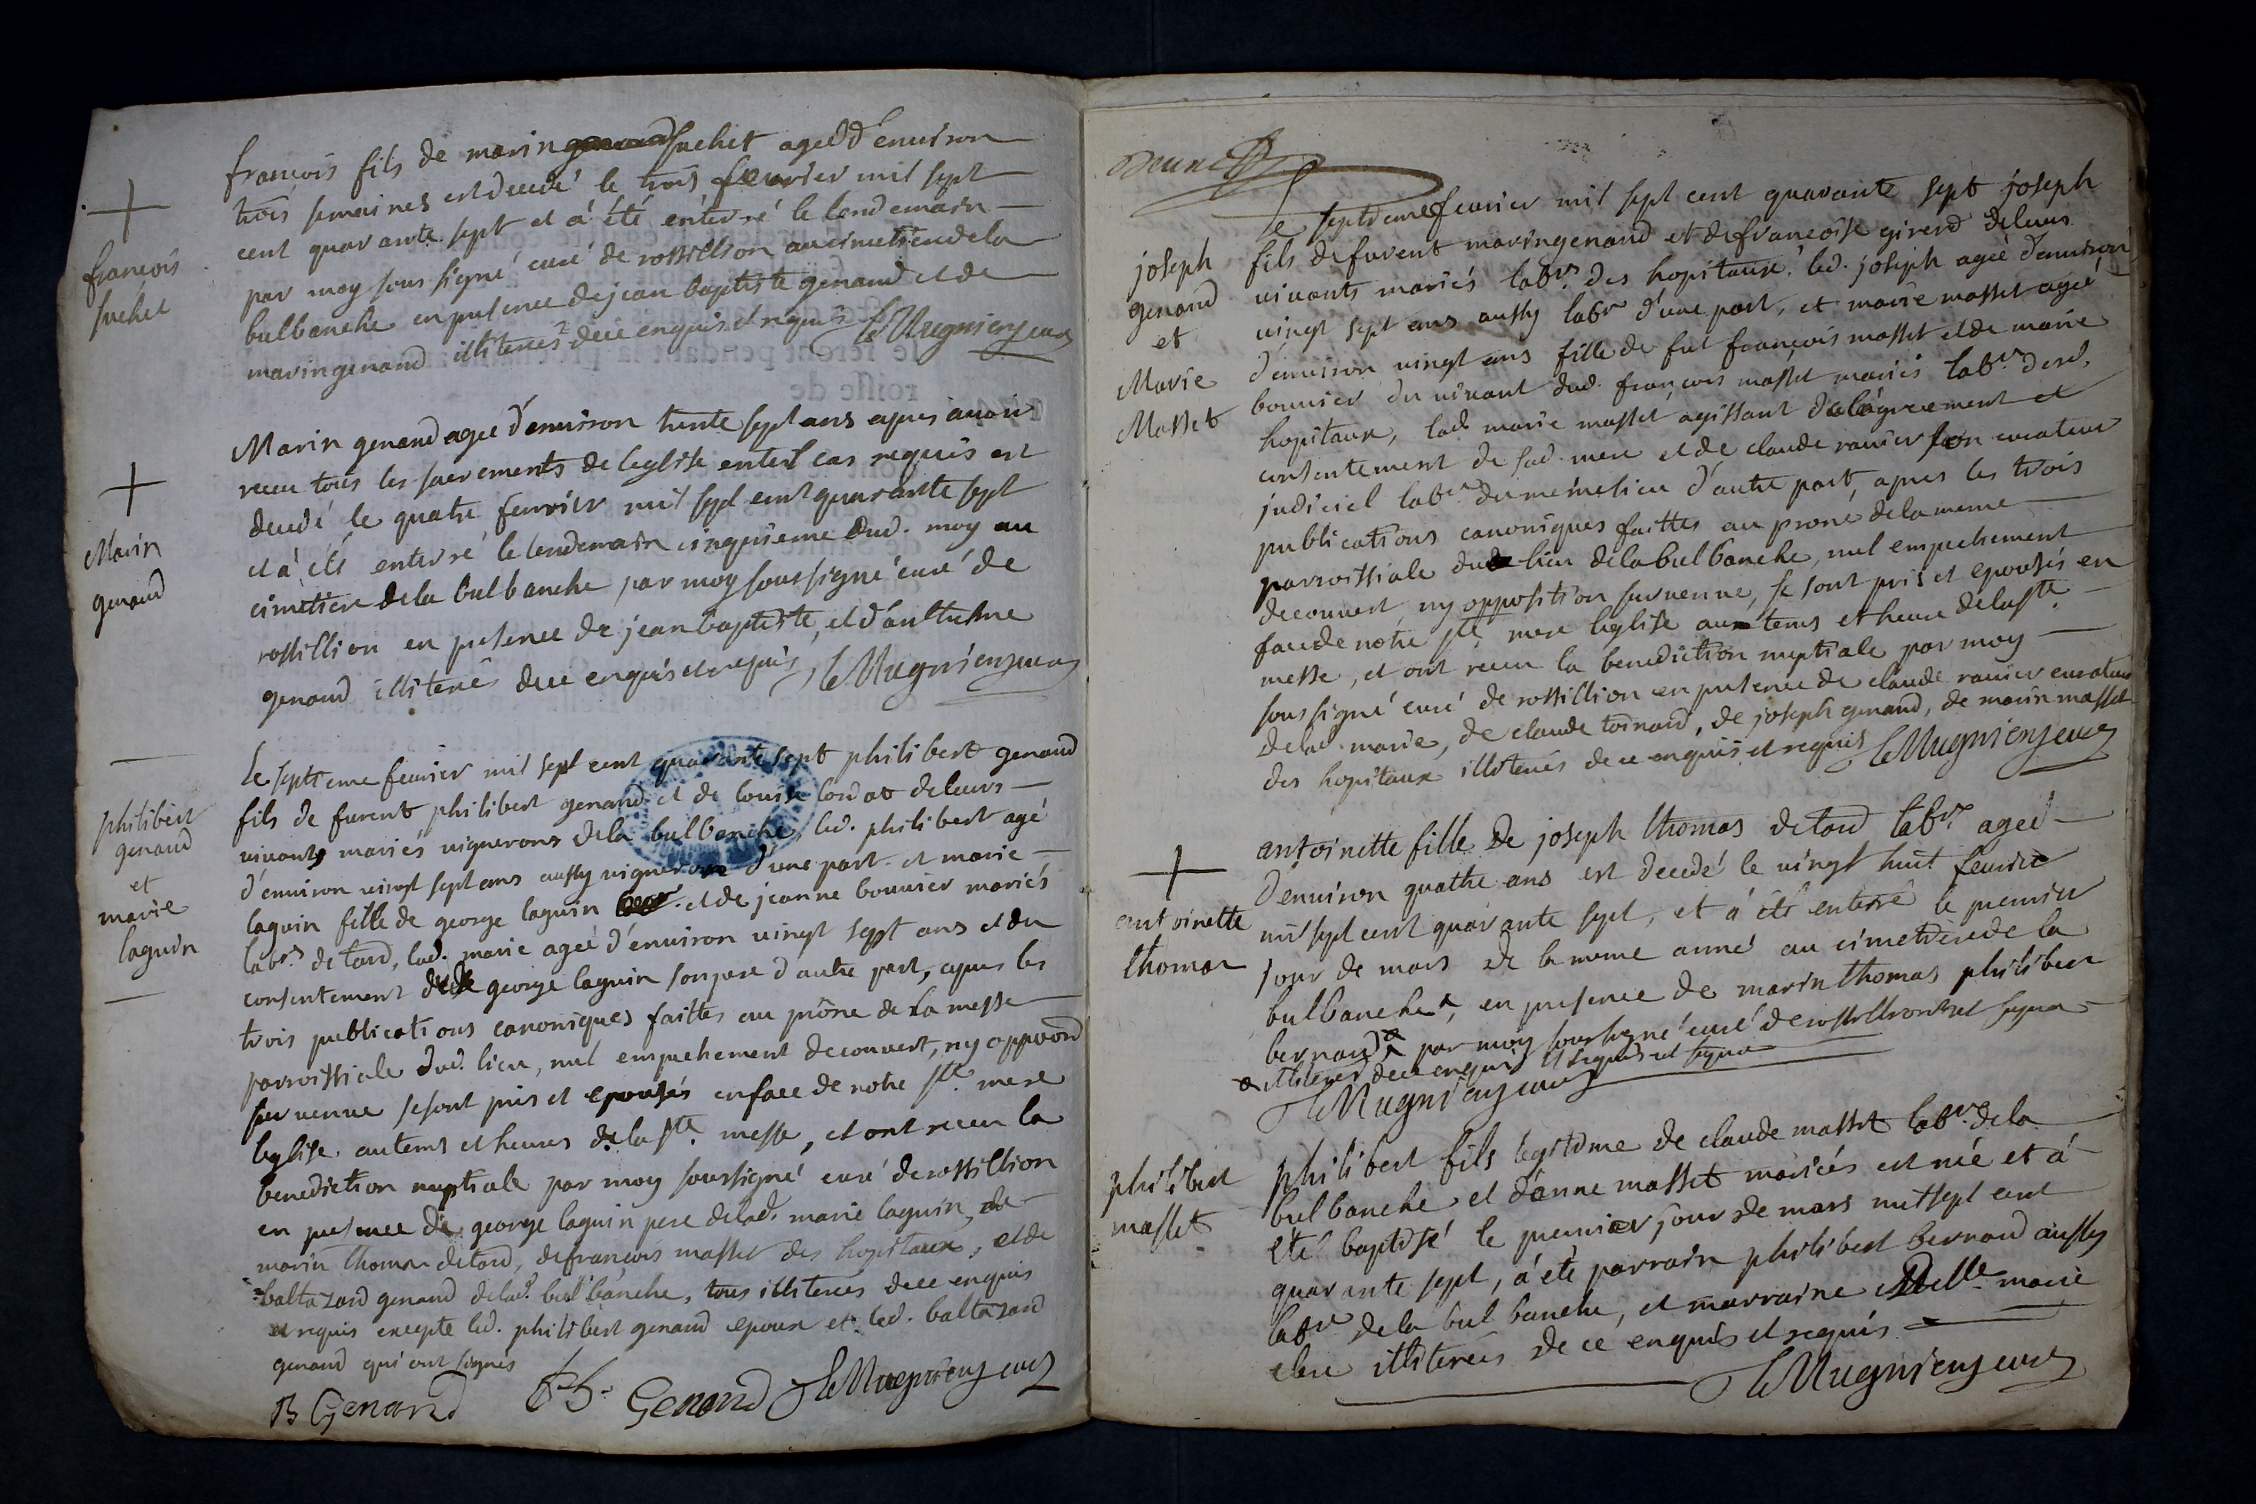 françois
suchet
françois fils de marin genand suchet agé d'environ
trois semaines est decedé le trois fevrier mil sept
cent quarante sept et a été enterré le lendemain
par moy sous signé curé de rossillion au cimetiere de la
bulbanche en presence de jean baptiste genand et de
marin genand illiterés de ce enquis et requis
Marin
genand
Marin genand agé d'environ trente sept ans apres avoir
receu tous les sacrements de leglise en tel cas requis est
decedé le quatre fevrier mil sept cent quarante sept
et a été enterré le lendemain cinquieme dud. moy au
cimetiere de la bulbanche par moy soussigné curé de
rossillion en presence de jean baptiste, et d'anthelme
genand illiterés de ce enquis et requis
philibert
genand
et
marie
laguin
Le septieme fevrier mil sept cent quarante sept philibert genand
fils de furent philibert genand et de louise cordat de leurs
vivants mariés vignerons de la bulbanche, led. philibert agé
d'environ vingt sept ans aussy vigneron d'une part et marie
laguin fille de george laguin et de jeanne bouvier mariés
labrs. de tard, lad. marie ageé d'environ vingt sept ans et du
consentement de george laguin son pere d'autre part, apres les
trois publications canoniques faittes au prône de la messe
parroissiale dud. lieu, nul empechement decouvert, ny opposition
survenue se sont pris et epousés en face de notre ste. mere
leglise au tems et heures de la ste. messe, et ont receu la
benediction nuptiale par moy soussigné curé de rossillion
en presence de george laguin pere de lad. marie laguin, de
marin thomas de tard, de françois masset des hopitaux, et de
baltazard genand de lad. bulbanche, tous illiterés de ce enquis
et requis excepté led. philibert genand epoux et led. baltazard
genand qui ont signés
B Genand Ph. Genand
joseph
genand
et
Marie
Masset
Le septieme fevrier mil sept cent quarante sept joseph
fils de furent marin genand et de françoise girerd de leurs
vivants mariés labrs. des hopitaux, led. joseph agé d'environ
vingt sept ans aussy labr d'une part, et marie masset ageé
d'environ vingt ans fille de fut françois masset et de marie
bouvier du vivant dud. françois masset mariés labrs. desd.
hopitaux, lad. marie masset agissant de l'agreement et
consentement de sad. mere et de claude ravier son curateur
judiciel labr. du meme lieu d'autre part, apres les trois
publications canoniques faittes au prone de la messe
parroissiale du lieu de la bulbanche, nul empechement
decouvert ny opposition survenue, se sont pris et epousés en
face de notre ste. mere leglise au tems et heure de la ste.
messe, et ont receu la benediction nuptiale par moy
sous signé curé de rossillion en presence de claude ravier curateur
de lad. marie, de claude toinard, de joseph genand, de marin masset
des hopitaux illiterés de ce enquis et requis
antoinette
thomas
antoinette fille de joseph thomas de tard labr. ageé
d'environ quatre ans est decedé le vingt huit fevrier
mil sept cent quarante sept, et a été enterré le premier
jour de mars de la meme anné au cimetiere de la
bulbanche, en presence de marin thomas philibert
bernard par moy soussigné curé de rossillion
illiterés de ce enquis et requis
philibert
masset
philibert fils legitime de claude masset labr. de la
bulbanche et d'anne masset mariés est né et a
été baptisé le premier jour de mars mil sept cent
quarante sept, a été parrain philibert bernard aussy
labr de la bulbanche, et marraine Delle. marie
illiterés de ce enquis et requis